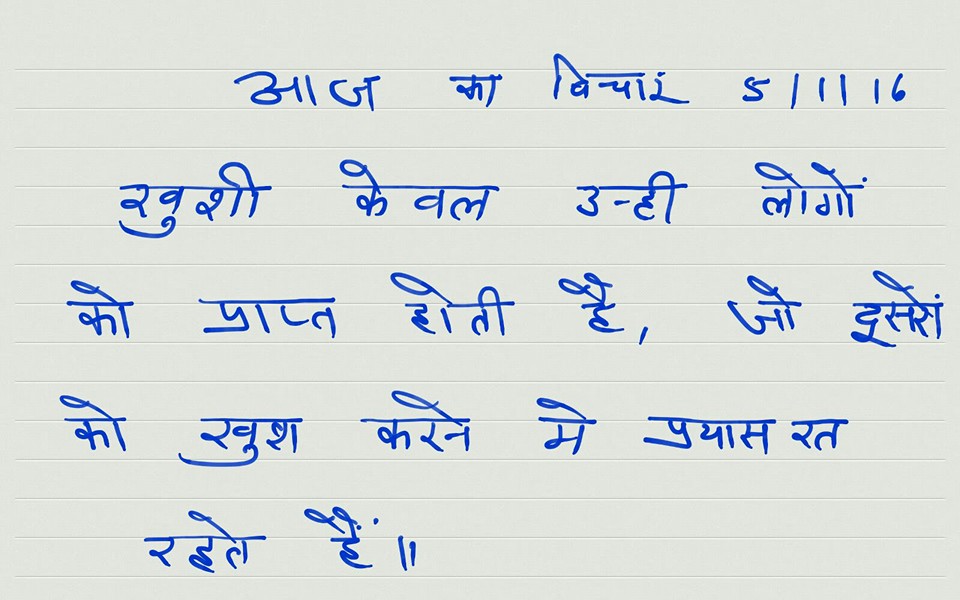 आज का विचार 5/11/16
खुशी केवल उन्ही लोगों
को प्राप्त होती है, जो दूसरों
को खुश करने मे प्रयास रत
रहते हैं॥